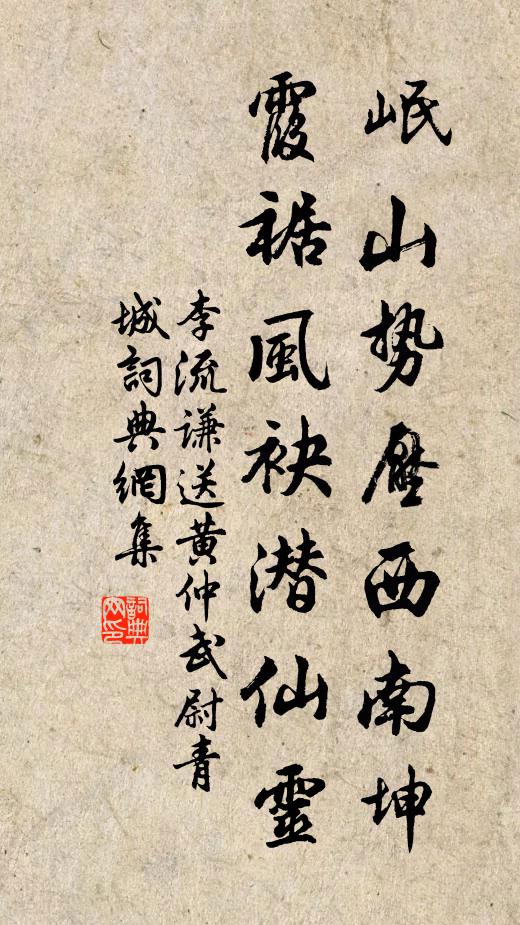 岷山势压西南坤
霞裾風袂潜仙靈
李流谦送黄仲武尉青
城詞典網集
詞典
网印